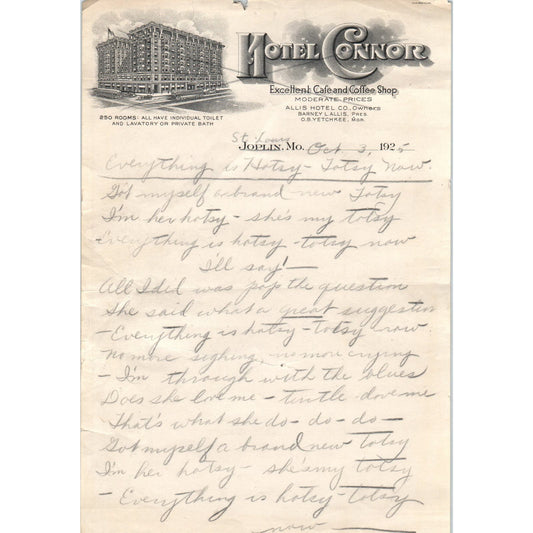 HOTEL CONNOR
Excellent Cafe and Coffee Shop
MODERATE PRICES
ALLIS HOTEL CO., OWNERS
BARNEY L. ALLIS, PRES.
O.B. YETCHKEE, MGR.
250 ROOMS: ALL HAVE INDIVIDUAL TOILET
AND LAVATORY OR PRIVATE BATH
St. Louis
JOPLIN, MO. Oct 3, 1925
Everything is Hotsy-Totsy Now.
Got myself a brand new Totsy
I'm her hotsy - she's my totsy
Everything is hotsy-totsy now
I'll say! —
All I did was pop the question
She said what a great suggestion
- Everything is hotsy-totsy now.
No more sighing, no more crying
- I'm through with the blues
Does she love me - turtle-dove me
That's what she do-do-do-
Got myself a brand new totsy
I'm her hotsy - she's my totsy
- Everything is hotsy-totsy
now —